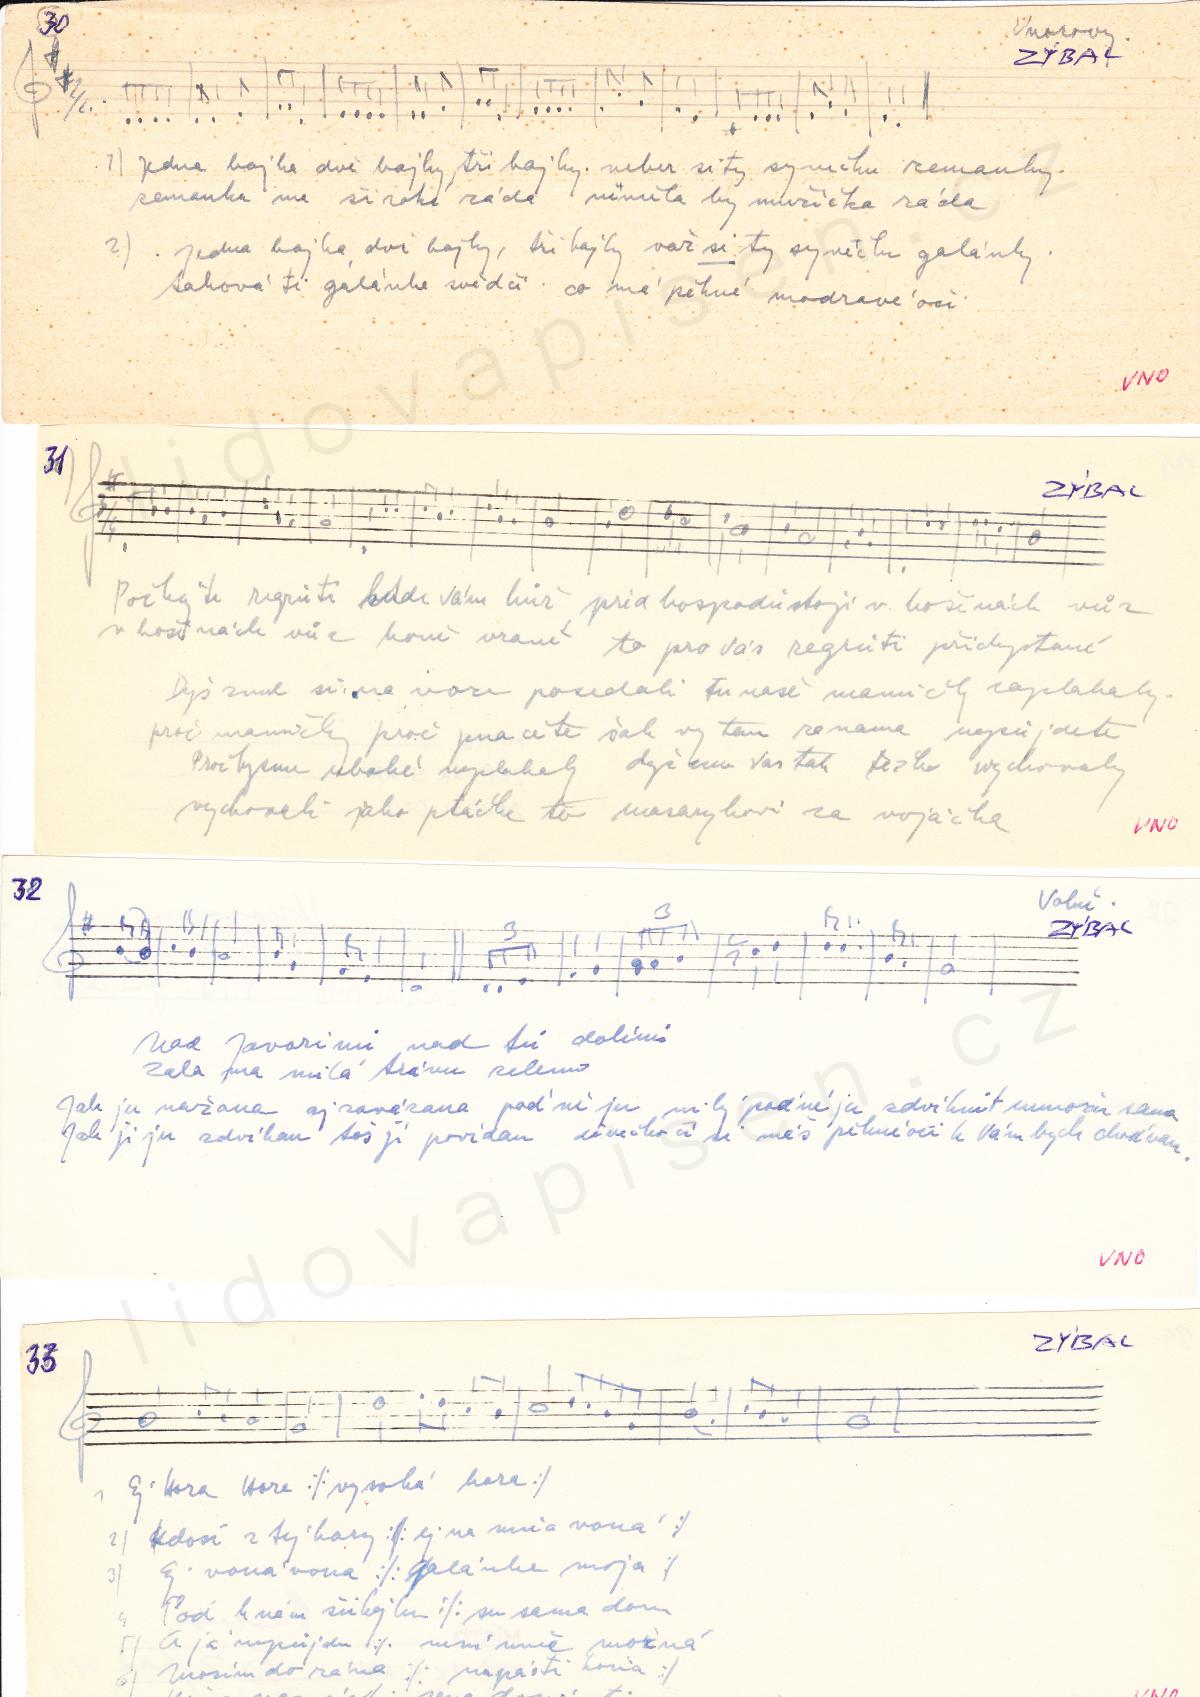 30
Vnorovy.
ZÝBAL
1) Jedna hajka dvě hajky, tři hajky. neber si ty synečku zemanky.
zemanka má široké záda by muzička ráda
2) . jedna hajka, dvě hajky, tři hajky vař si ty synečku galánky.
taková ti galánka svědčí. co má pěkné modravé oči.
VNO
31
ZÝBAL
Počkajte regrúti bude vám hůř před hospodú stojí v košinách vůz
v košinách vůz koně vrané to pro vás regrúti přichystané
Dyž sme si na voze posedali tu naše maměčky zaplakaly.
proč maměčky proč plačete šak vy tam za nama nepůjdete
Proč bysme ubohé neplakaly dyž sme vás tak těžko vychovaly
vychovali jako ptáčka to masarykovi za vojáčka
VNO
32
Volně.
ZÝBAL
3
3
Nad Javorími nad tú dolinú
žala má milá trávu zelenú
Jak ju nažala aj zavázala poď ně ju milý poď ně ju zdvihnút nemožu sama
Jak jí ju zdvihau toš jí povídau děvečko čí si máš pěkné oči k Vám bych chodívau.
VNO
33
ZÝBAL
1 Ej Hora Hora :/: vysoká hora :/
2) Kdosi z tej hory :/: ej na mňa volá :/
3) Ej volá volá :/: galánka moja :/
4 Poď k nám šuhajku :/: su sama doma
5) A já nepůjdu :/: není mně možná
6) Mosím do rána :/: napásti koňa :/
VNO